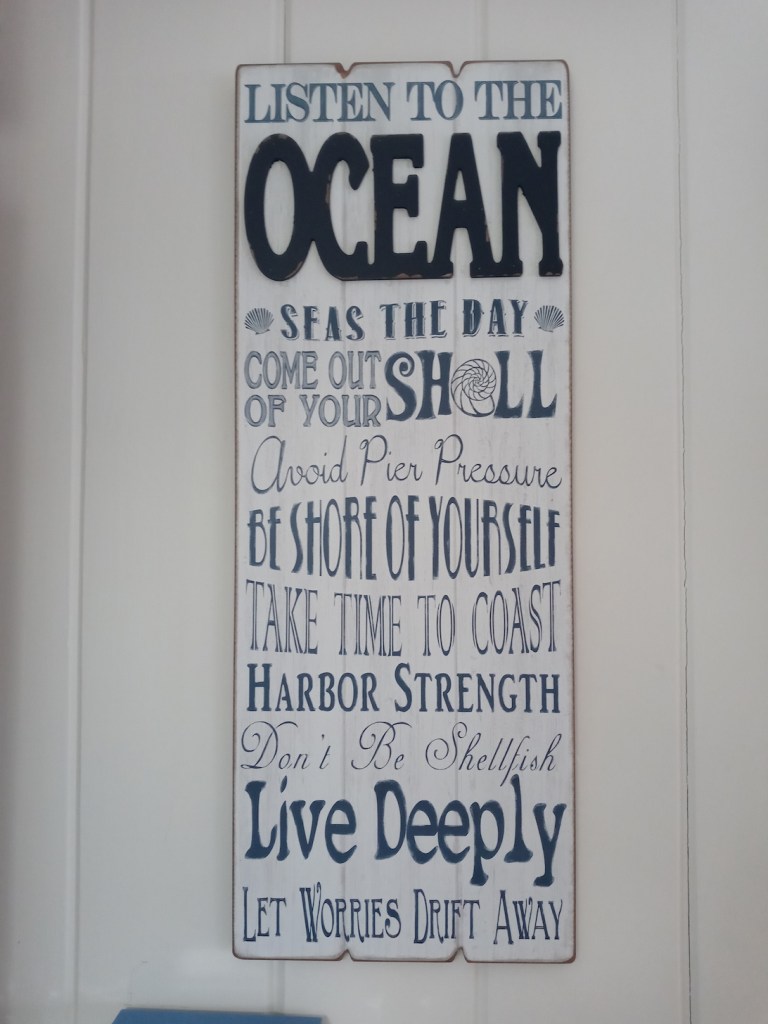 LISTEN TO THE
OCEAN
SEAS THE DAY
COME OUT
OF YOUR SHELL
Avoid Pier Pressure
BE SHORE OF YOURSELF
TAKE TIME TO COAST
HARBOR STRENGTH
Don't Be Shellfish
Live Deeply
LET WORRIES DRIFT AWAY